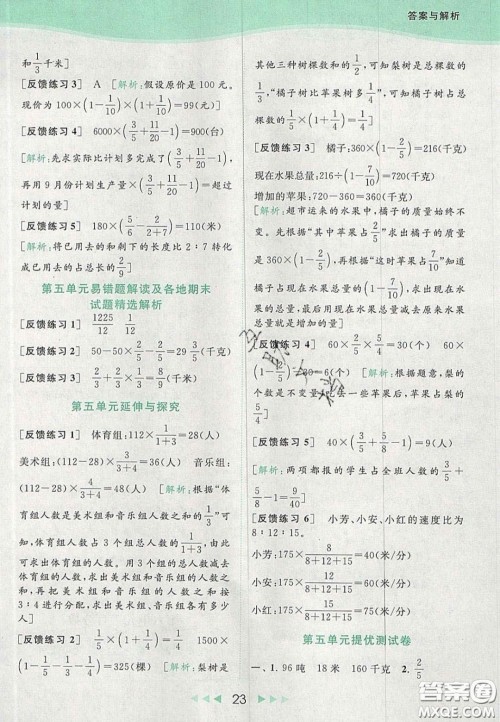 答案与解析
和1/3千米]
[反馈练习3] A [解析:假设原价是100元,
现价为100×(1-1/10)×(1+1/10)=99(元)]
[反馈练习4] 6000×(3/5+11/20-1)=900(台)
[解析:先求实际比计划多完成了(3/5+11/20-1),
再用9月份计划生产量×(3/5+11/20-1)=超过
计划的量]
[反馈练习5] 180×(5/6-2/2+7)=110(米)
[解析:将已用去的和剩下的长度比2:7转化成
已用去的占总长的2/9]
第五单元易错题解读及各地期末
试题精选解析
[反馈练习1] 1225/12 15/12
[反馈练习2] 50-50×2/5-2/5=29 3/5(千克)
[反馈练习3] 8/9×(1-1/4)=2/3(千米)
第五单元延伸与探究
[反馈练习1] 体育组:112×1/1+3=28(人)
美术组:(112-28)×3/3+4=36(人) 音乐组:
(112-28)×4/3+4=48(人) [解析:根据“体
育组人数是美术组和音乐组人数之和的1/3”可
知,体育组人数占3个组总人数的1/1+3,由此
可求出体育组的人数。用总人数减去
体育组的人数就是美术组和音乐组的人数
之和,再把美术组和音乐组人数之和按
3:4进行分配,可求出美术组和音乐组
的人数]
[反馈练习2] 1/1+3=1/4 1500×
(1-1/5-1/4-1/3)=325(棵) [解析:梨树是
其他三种树棵数和的1/4,可知梨树是总棵数的
1/5,“橘子树比苹果树多1/3”,可知橘子树占总
棵数的1/3]
[反馈练习3] 橘子:360×(1-2/5)=216(千克)
现在水果总量:216÷(1-7/10)=720(千克)
增加的苹果:720-360=360(千克)
[解析:超市运来的水果中,橘子的质量始终不
变。先根据“橘子的质量占水果总量的(1-
2/5)”,求出橘子的质量:360×(1-2/5)=216(千
克),再根据“橘子的质量占现在水果总量的
(1-7/10)”,求出现在水果总量,用现在水果总量
减去原来水果的总量,求出增加的水果的
总量]
[反馈练习4] 60×2/5÷4/5=30(个) 60×
(1-2/5)-30=6(个) [解析:根据题意,梨的
个数不变,苹果比去一些苹果后,苹果占梨的
5/4]
[反馈练习5] 40×(3/5+5/8-1)=9(人)
[解析:两项都报的学生占全班人数的3/5+
5/8-1=9/40]
[反馈练习6] 小芳、小安、小红的速度比为
8:12:15。
小芳:175×8/8+12+15=40(米/分)
小安:175×12/8+12+15=60(米/分)
小红:175×15/8+12+15=75(米/分)
第五单元提优测试卷
一、1. 96吨 18米 160千克 2. 2/5
23
答案圈
MXQE.COM